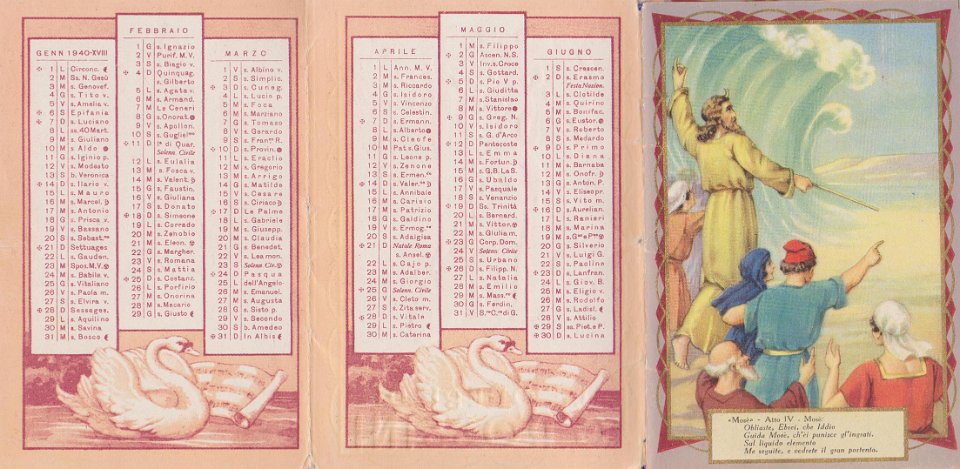 GENN. 1940-XVIII
1 L Circonc.
2 M Ss. N. Gesù
3 M s. Genovef.
4 G s. Tito v.
5 V s. Amelia v.
6 S Epifania
7 D s. Luciano
8 L ss. 40 Mart.
9 M s. Giuliano
10 M s. Aldo
11 G s. Iginio p.
12 V s. Modesto
13 S b. Veronica
14 D s. Ilario v.
15 L s. Mauro
16 M s. Marcel.
17 M s. Antonio
18 G s. Prisca v.
19 V s. Bassano
20 S s. Sebast.
21 D Settuages.
22 L s. Gauden.
23 M Spos. M. V.
24 M s. Babila v.
25 G s. Vitaliano
26 V s. Paola m.
27 S s. Elvira v.
28 D Sessages.
29 L s. Aquilino
30 M s. Savina
31 M s. Bosco
FEBBRAIO
1 G s. Ignazio
2 V Purif. M. V.
3 S s. Biagio v.
4 D Quinquag.
s. Gilberto
5 L s. Agata v.
6 M s. Armand.
7 M Le Ceneri
8 G s. Onorat.
9 V s. Apollon.
10 S s. Gugliel.
11 D Iª di Quar.
Solenn. Civile
12 L s. Eulalia
13 M s. Fosca v.
14 M s. Valent.
15 G s. Faustin.
16 V s. Giuliana
17 S s. Donato
18 D s. Simeone
19 L s. Corrado
20 M s. Zenobio
21 M s. Eleon.
22 G s. Margher.
23 V s. Romana
24 S s. Mattia
25 D s. Costanz.
26 L s. Porfirio
27 M s. Onorina
28 M s. Macario
29 G s. Giusto
MARZO
1 V s. Albino v.
2 S s. Simplic.
3 D s. Cuneg.
4 L s. Lucio p.
5 M s. Foca
6 M s. Marziano
7 G s. Tomaso
8 V s. Gerardo
9 S s. Franᶜᵃ R.
10 D s. Provin.
11 L s. Eraclio
12 M s. Gregorio
13 M s. Arrigo
14 G s. Matilde
15 V s. Cesare
16 S s. Ciriaco
17 D Le Palme
18 L s. Gabriele
19 M s. Giusepp.
20 M s. Claudia
21 G s. Benedet.
22 V s. Lea mon.
23 S Solenn Civ.
24 D Pasqua
25 L dell'Angelo
26 M s. Emanuel.
27 M s. Augusta
28 G s. Sisto p.
29 V s. Secondo
30 S b. Amedeo
31 D In Albis
APRILE
1 L Ann. M. V.
2 M s. Frances.
3 M s. Riccardo
4 G s. Isidoro
5 V s. Vincenzo
6 S s. Celestin.
7 D s. Ermann.
8 L s. Alberto
9 M s. Cleofe
10 M Pat. s. Gius.
11 G s. Leone p.
12 V s. Zenone
13 S s. Ermen.
14 D s. Valer.
15 L s. Annibale
16 M s. Carisio
17 M s. Patrizio
18 G s. Galdino
19 V s. Ermog.
20 S s. Adalgisa
21 D Natale Roma
s. Ansel.
22 L s. Cajo p.
23 M s. Adalber.
24 M s. Giorgio
25 G Solenn. Civile
26 V s. Cleto m.
27 S s. Zita serv.
28 D s. Vitale
29 L s. Pietro
30 M s. Caterina
MAGGIO
1 M s. Filippo
2 G Ascen. N. S.
3 V Inv. s. Croce
4 S s. Gottard.
5 D s. Pio V p.
6 L s. Giuditta
7 M s. Stanislao
8 M s. Vittore
9 G s. Greg. N.
10 V s. Isidoro
11 S s. G. d'Arco
12 D Pentecoste
13 L s. Emma
14 M s. Fortun.
15 M s. G. B. La S.
16 G s. Ubaldo
17 V s. Pasquale
18 S s. Venanzio
19 D Ss. Trinità
20 L s. Bernard.
21 M s. Vittor.
22 M s. Giulia m.
23 G Corp. Dom.
24 V Solenn. Civile
25 S s. Urbano
26 D s. Filipp. N.
27 L s. Natalia
28 M s. Emilio
29 M s. Mass.
30 G s. Ferdin.
31 V S. C. di G.
GIUGNO
1 S s. Crescen.
2 D s. Erasmo
Festa Nazion.
3 L s. Clotilde
4 M s. Quirino
5 M s. Bonifac.
6 G s. Eustor.
7 V s. Roberto
8 S s. Medardo
9 D s. Primo
10 L s. Diana
11 M s. Barnaba
12 M s. Onofr.
13 G s. Anton. P.
14 V s. Eliseopr.
15 S s. Vito m.
16 D s. Aurelian.
17 L s. Ranieri
18 M s. Marina
19 M s. Gᵐᵉ Pʳᵉ
20 G s. Silverio
21 V s. Luigi G.
22 S s. Paolino
23 D s. Lanfran.
24 L s. Giov. B.
25 M s. Eligio v.
26 M s. Rodolfo
27 G s. Ladisl.
28 V s. Attilio
29 S ss. Piet. e P.
30 D s. Lucina
«Mosè» - Atto IV - Mosè:
Obliaste, Ebrei, che Iddio
Guida Mosè, ch'ei punisce gl'ingrati.
Sul liquido elemento
Me seguite, e vedrete il gran portento.